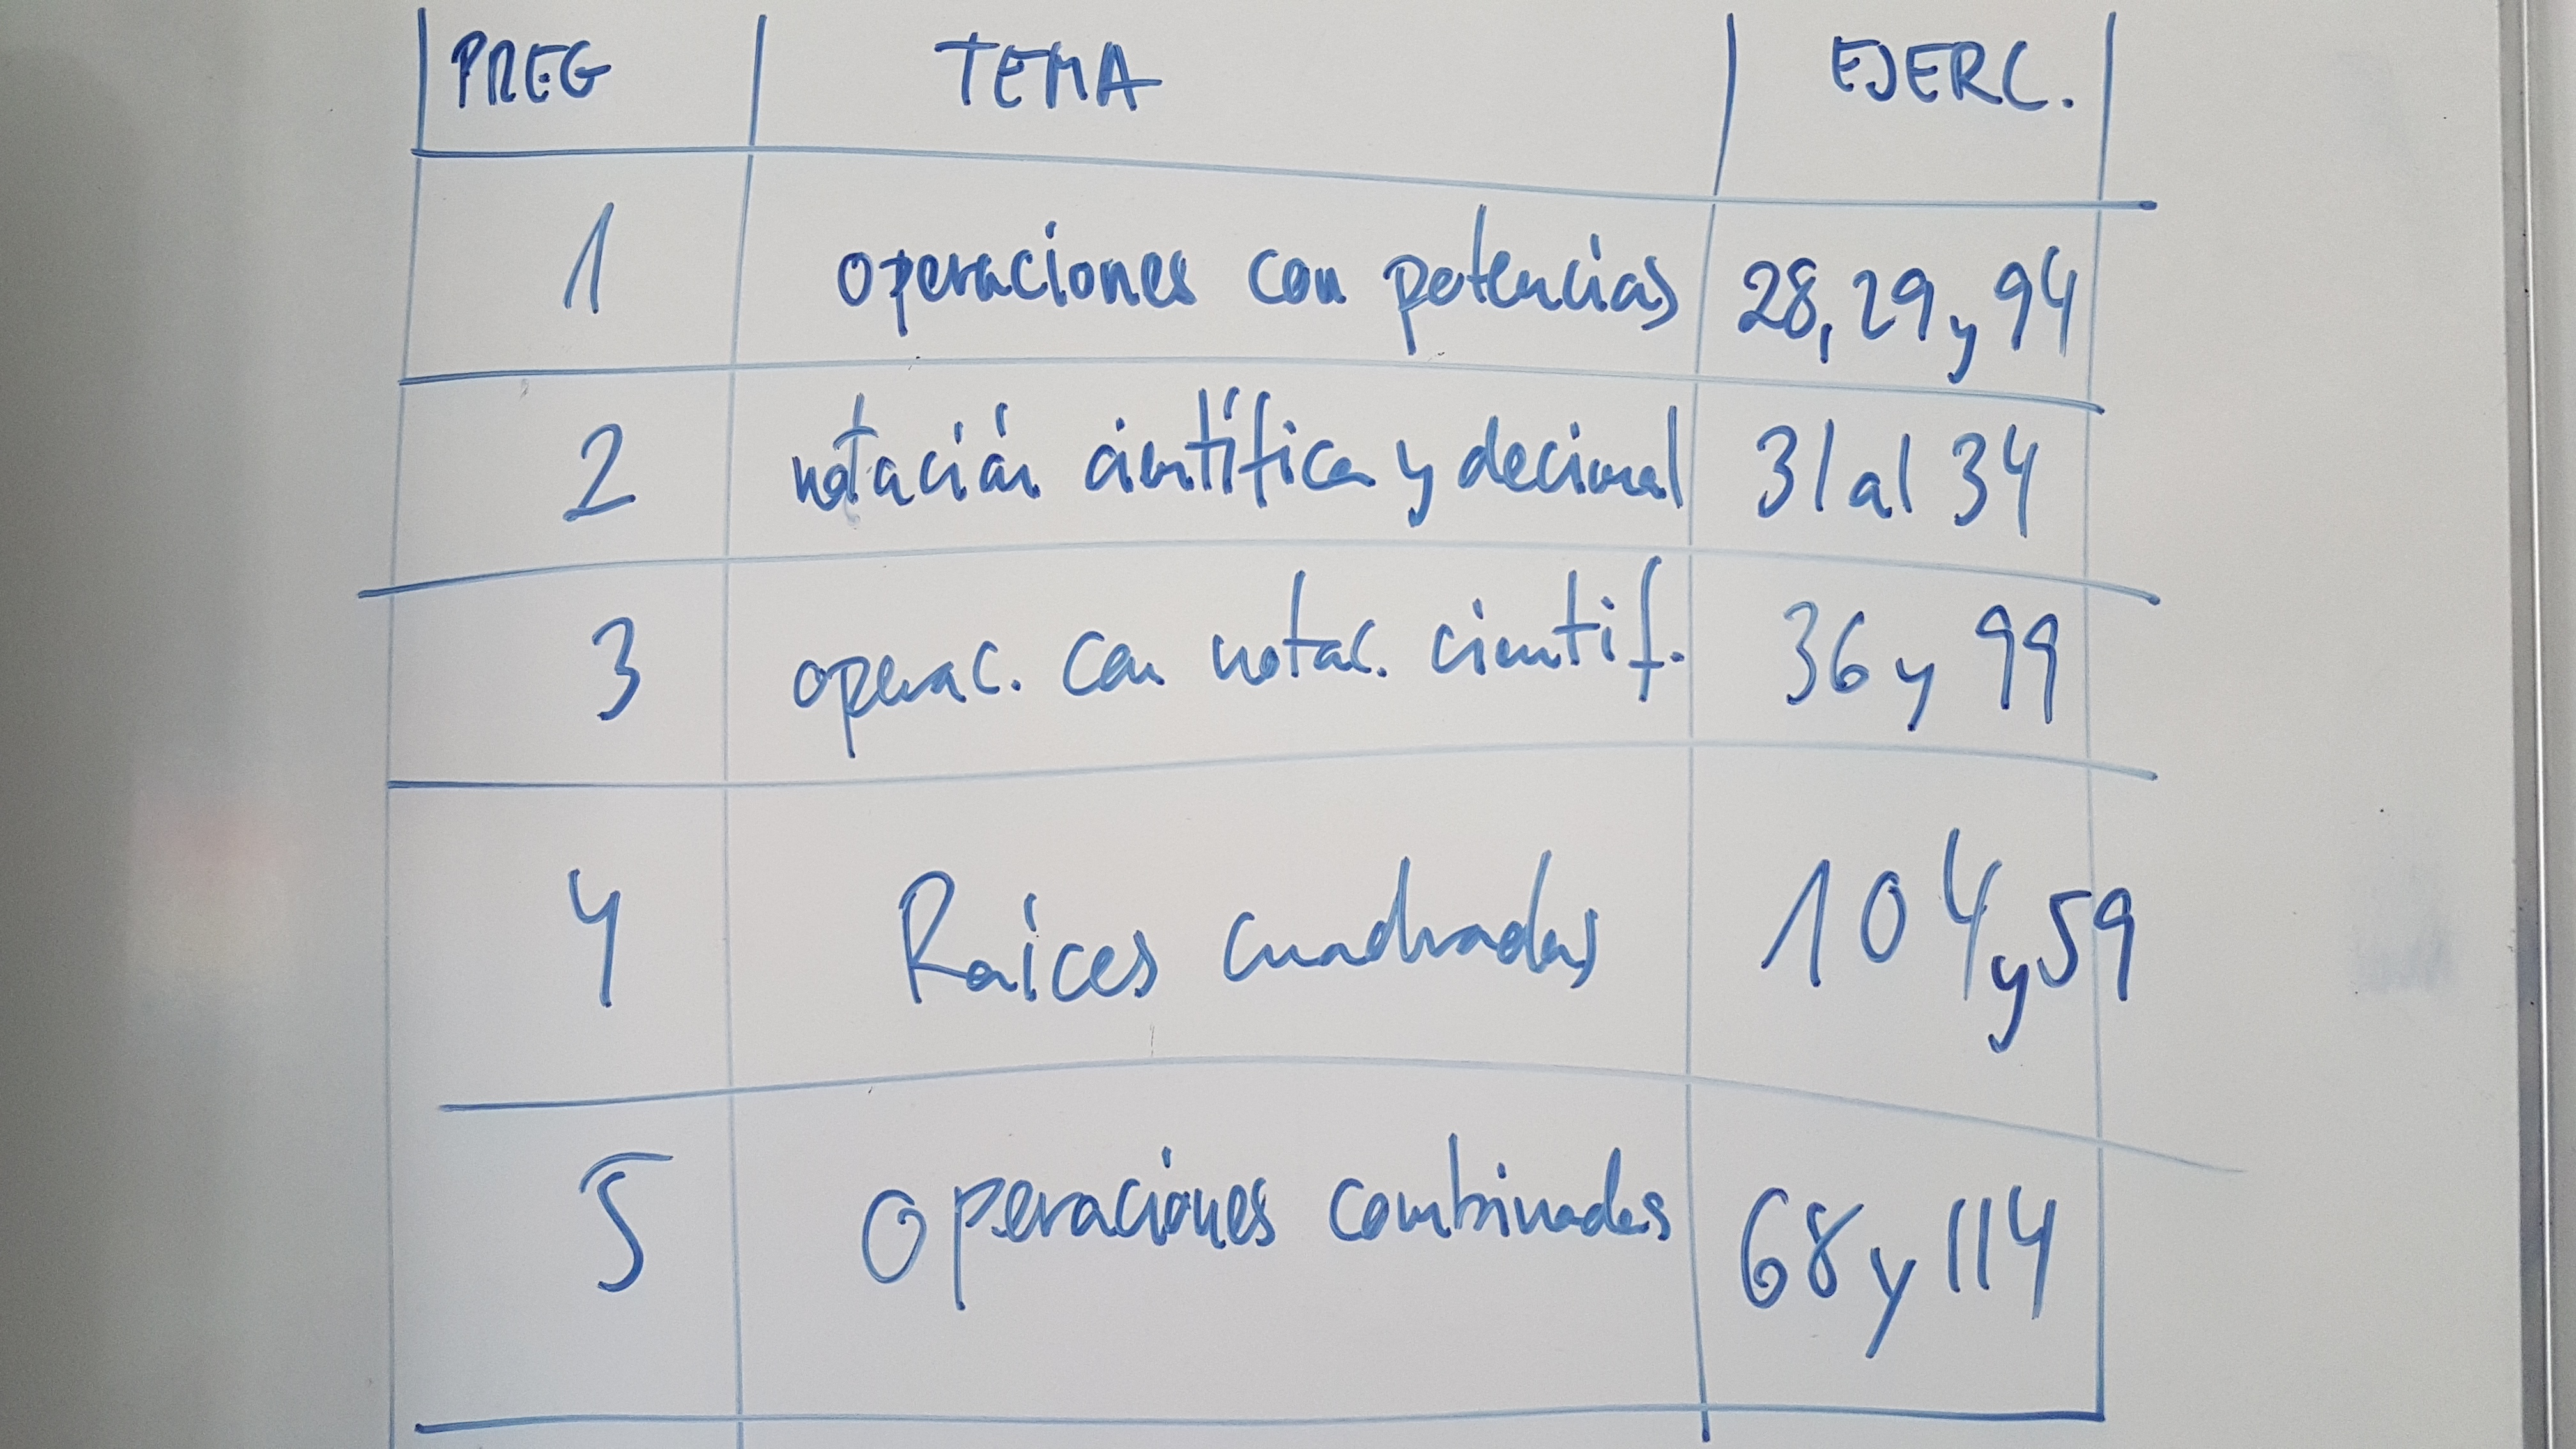 PREG TEMA EJERC.
1 operaciones con potencias 28, 29 y 94
2 notación científica y decimal 31 al 34
3 operac. con notac. cientif. 36 y 99
4 Raíces cuadradas 104 y 59
5 Operaciones combinadas 68 y 114